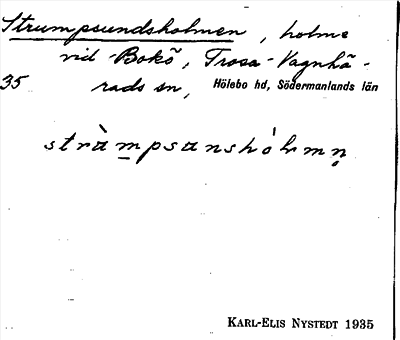 Strumpsundsholmen, holme
vid Bokö, Trosa-Vagnhä-
35 rads sn, Hölebo hd, Södermanlands län
stràmpsanshólmn̥
KARL-ELIS NYSTEDT 1935